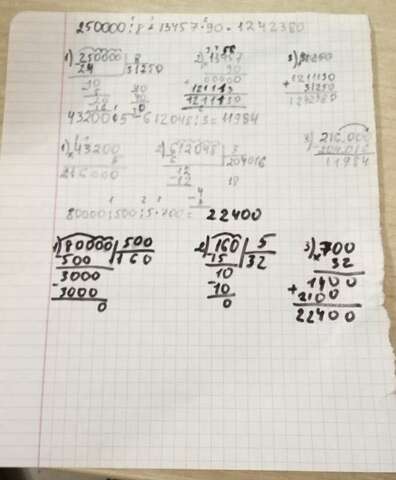 250000:8+13457·90=1242380
1) 250000 | 8   2) 13457   3) 31250
24 | 31250   90
10   00000   + 1211130
8   121113   31250
20   1211130   1242380
16
40
40
0
43200·5-612048:3=11984
1) 43200   2) 612048 | 3   3) 216.000
5   204016   -204.016
216000   12   11984
-12   18
80000:500:5·700=22400
1) 80000 | 500   2) 160 | 5   3) 700
-500 | 160   -15 | 32   x 32
3000   10   1400
-3000   -10   +2100
0   0   22400